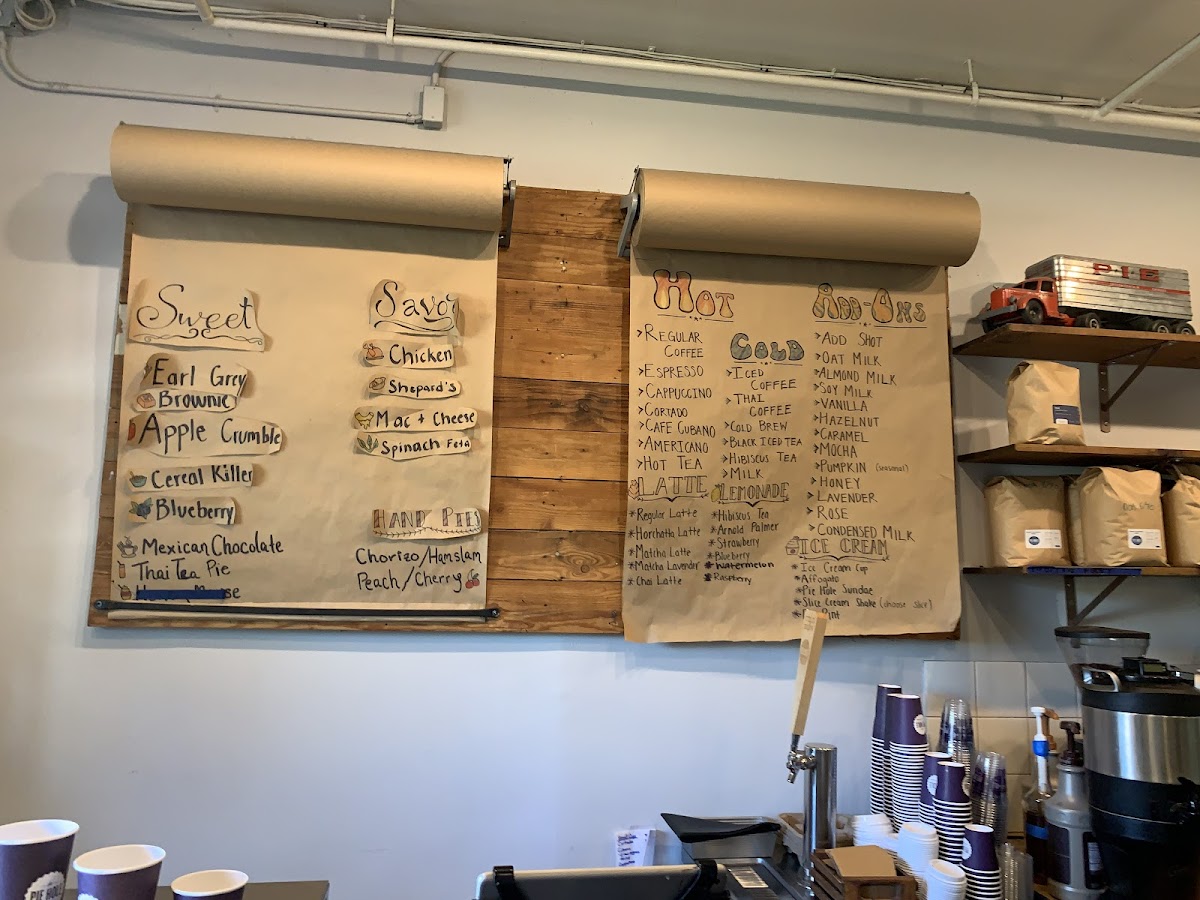 Sweet
Earl Grey
Brownie
Apple Crumble
Cereal Killer
Blueberry
Mexican Chocolate
Thai Tea Pie
Savor
Chicken
Shepard's
Mac + Cheese
Spinach Feta
HAND PIES
Chorizo/Hamslam
Peach/Cherry
HOT
>REGULAR
COFFEE
>ESPRESSO
>CAPPUCCINO
>CORTADO
>CAFE CUBANO
>AMERICANO
>HOT TEA
LATTE
*Regular Latte
*Horchatta Latte
*Matcha Latte
*Matcha Lavender
*Chai Latte
COLD
>ICED
COFFEE
>THAI
COFFEE
>COLD BREW
>BLACK ICED TEA
>HIBISCUS TEA
>MILK
LEMONADE
*Hibiscus Tea
*Arnold Palmer
*Strawberry
*Blueberry
*Watermelon
*Raspberry
ADD-ONS
>ADD SHOT
>OAT MILK
>ALMOND MILK
>SOY MILK
>VANILLA
>HAZELNUT
>CARAMEL
>MOCHA
>PUMPKIN (seasonal)
>HONEY
>LAVENDER
>ROSE
>CONDENSED MILK
ICE CREAM
*Ice Cream Cup
*Affogato
*Pie Hole Sundae
*Slice Cream Shake (choose slice)
Pint
P·I·E
PIE HOLE